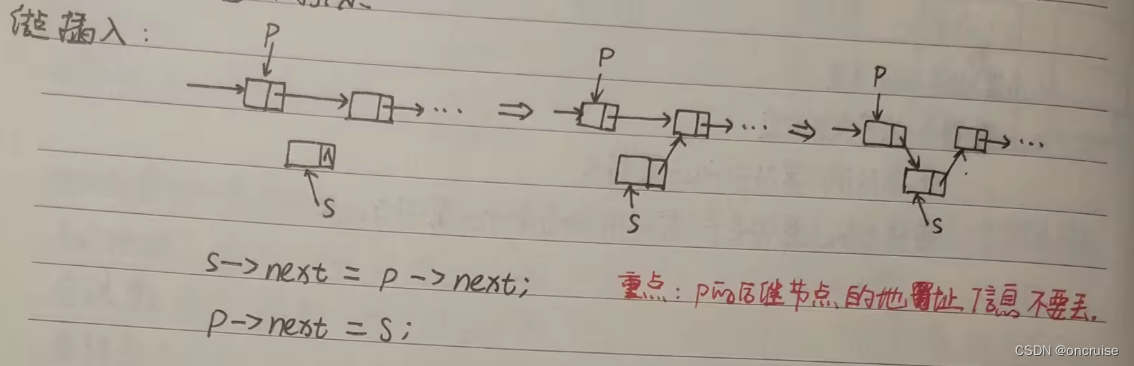 结点插入:
P P P
... ⇒ ... ⇒ ...
∧
S S S
s->next = p->next;
重点: P的后继节点的地址信息不要丢.
p->next = s;
CSDN @oncruise